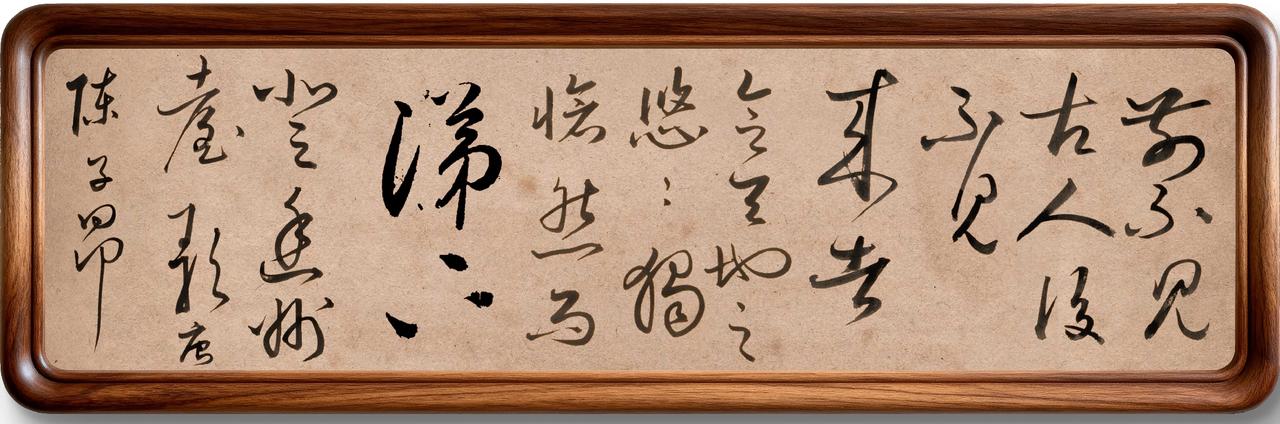 前不見
古人後
不見
來者
念天地之
悠悠獨
愴然而
涕下
登幽州
臺歌 唐
陳子昂